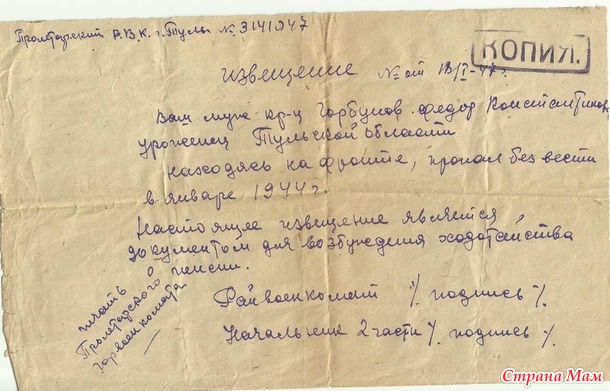 Пролетарский Р.В.К. г. Тулы № 3141047
КОПИЯ.
извещение № от 18/I-47г.
Ваш муж кр-ц Горбунов Федор Константинов.
уроженец Тульской области
находясь на фронте, пропал без вести
в январе 1944 г.
Настоящее извещение является
документом для возбуждения ходатайства
о пенсии.
печать
Пролетарского
горвоенкомата
Райвоенкомат /. подпись /.
Начальник 2 части /. подпись /.
Страна Мам